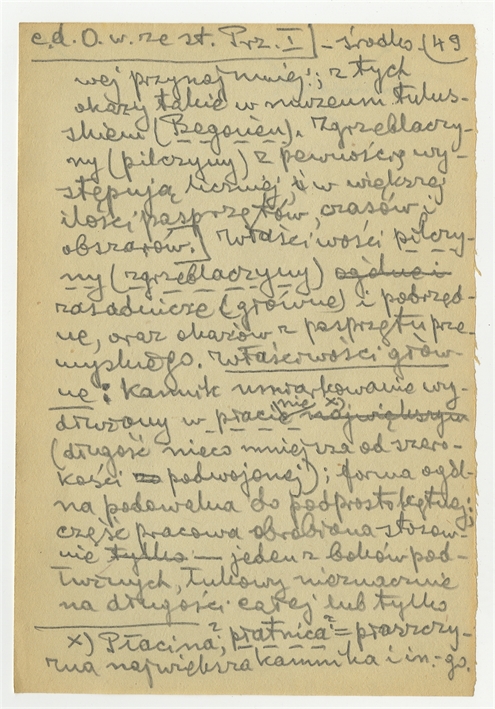 c.d. O. w. ze st. Prz. I] - środko- (49
wej przynajmniej; z tych
okazy takie w muzeum tulus-
skiem (Begouën). Zgrzeblaczy-
ny (pilczyny) z pewnością wy-
stępują liczniej, i w większej
ilości pasprzętów, czasów i
obszarów.] Właściwości pilczy-
ny (zgrzeblaczyny) ogólne i
zasadnicze (główne) i podrzęd-
ne, oraz okazów z pasprzętu prze-
mysłnego. Właściwości głów-
ne: kamik umiarkowanie wy-
dłużony w płacinie x) największym
(długość nieco mniejsza od szero-
kości za podwojonej); forma ogól-
na podowalna do podprostokątnej;
część pracowa obrobiona stosow-
nie tylko — jeden z boków pod-
łużnych, łukowy nieznacznie
na długości całej lub tylko
x) Płacina, płatnica = płaszczy-
zna największa kamika i in-go.